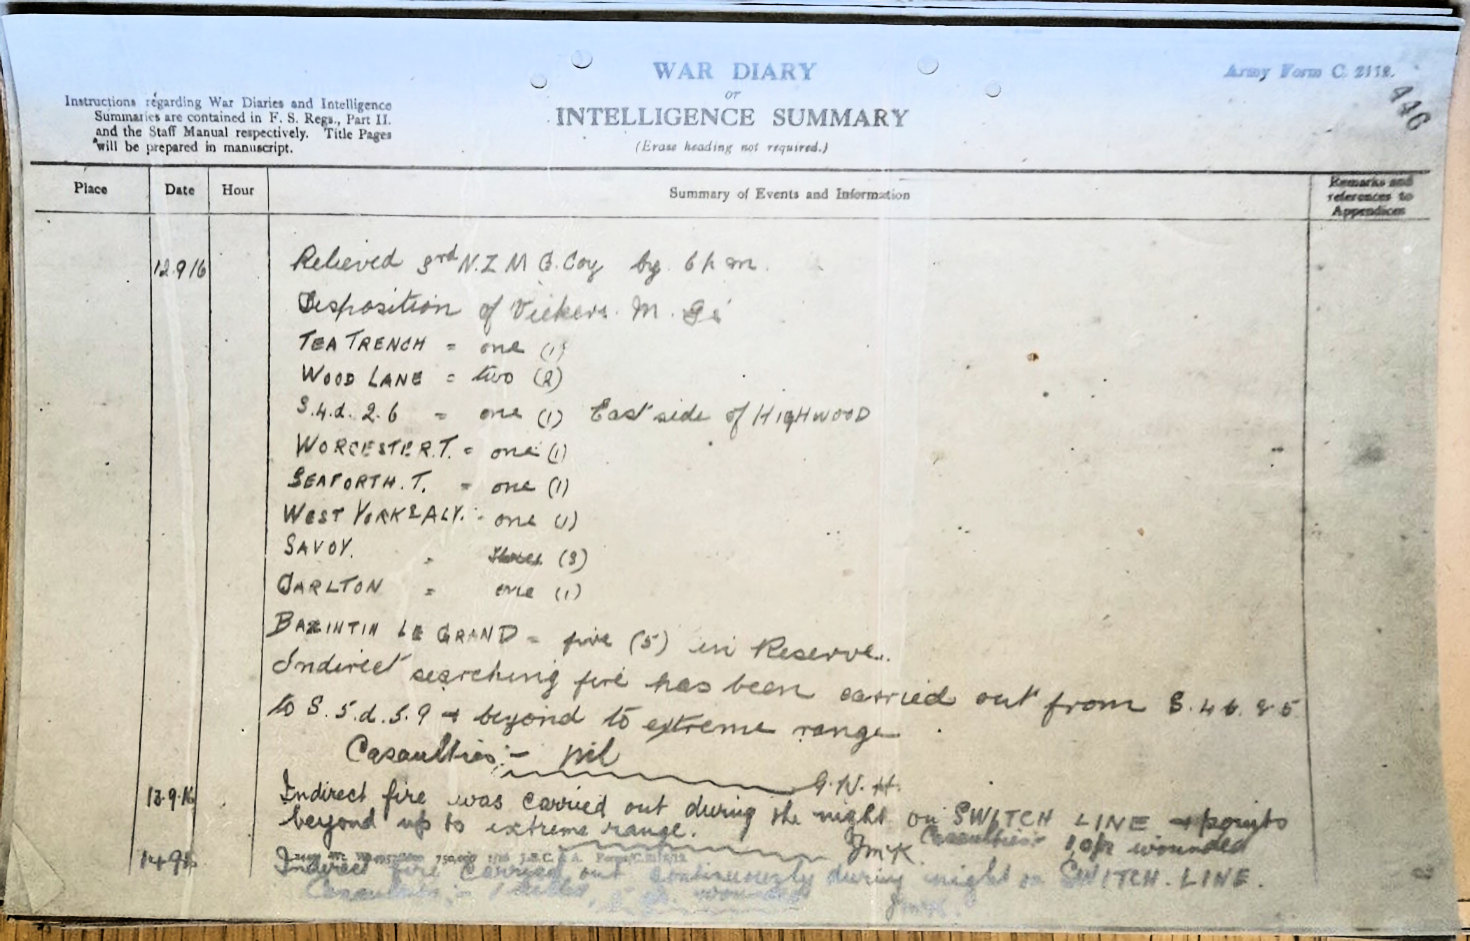 WAR DIARY
or
INTELLIGENCE SUMMARY
(Erase heading not required.)
Army Form C. 2118.
446
Instructions regarding War Diaries and Intelligence
Summaries are contained in F. S. Regs., Part II.
and the Staff Manual respectively. Title Pages
will be prepared in manuscript.
Place Date Hour Summary of Events and Information Remarks and
references to
Appendices
12.9.16 Relieved 3rd N.Z M G. Coy by 6 p m.
Disposition of Vickers. M. Gs
TEA TRENCH = one (1)
WOOD LANE = two (2)
S.4.d. 2.6 = one (1) East side of HIGHWOOD
WORCESTER.T. = one (1)
SEAFORTH.T. = one (1)
WEST YORKS ALY. = one (1)
SAVOY. = three (3)
CARLTON = one (1)
BAZINTIN LE GRAND = five (5) in Reserve.
Indirect searching fire has been carried out from S.4.b.8.5
to S.5.d.5.9 + beyond to extreme range
Casaulties:- Nil
G.N.H.
13.9.16 Indirect fire was carried out during the night on SWITCH LINE + points
beyond up to extreme range. JMcK Casaulties:- 1 O/R wounded
14.9.16 Indirect fire carried out continuously during night on SWITCH.LINE.
Casaulties:- 1 killed, wounded JMcK.